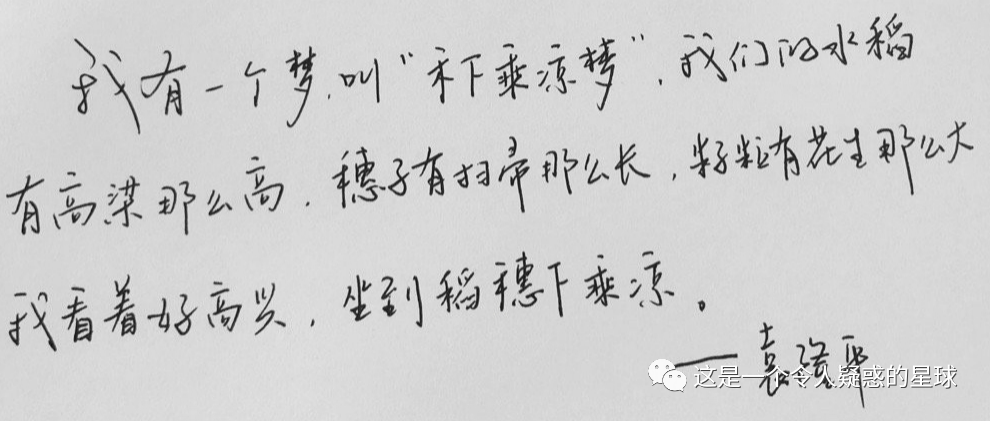 我有一个梦,叫“禾下乘凉梦”,我们的水稻
有高粱那么高,穗子有扫帚那么长,籽粒有花生那么大
我看着好高兴,坐到稻穗下乘凉。
——袁隆平
这是一个令人疑惑的星球